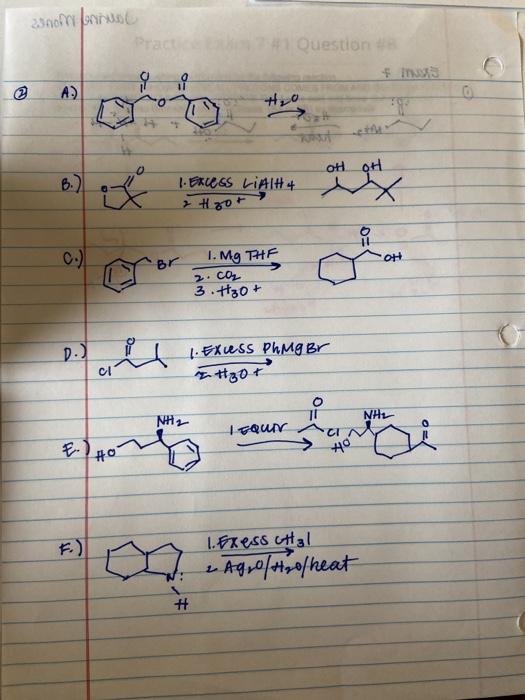 Practice Exam 7 #1 Question #8
② A.) O O O H₂O
B.) O O 1. Excess LiAlH4 OH OH
2 H3O+
C.) Br 1. Mg THF O OH
2. CO2
3. H3O+
D.) O Cl 1. Excess PhMgBr
2. H3O+
E.) HO NH2 1 EQUIV O Cl HO NH2 O
F.) N: H 1. Excess CH3I
2 Ag2O/H2O/heat